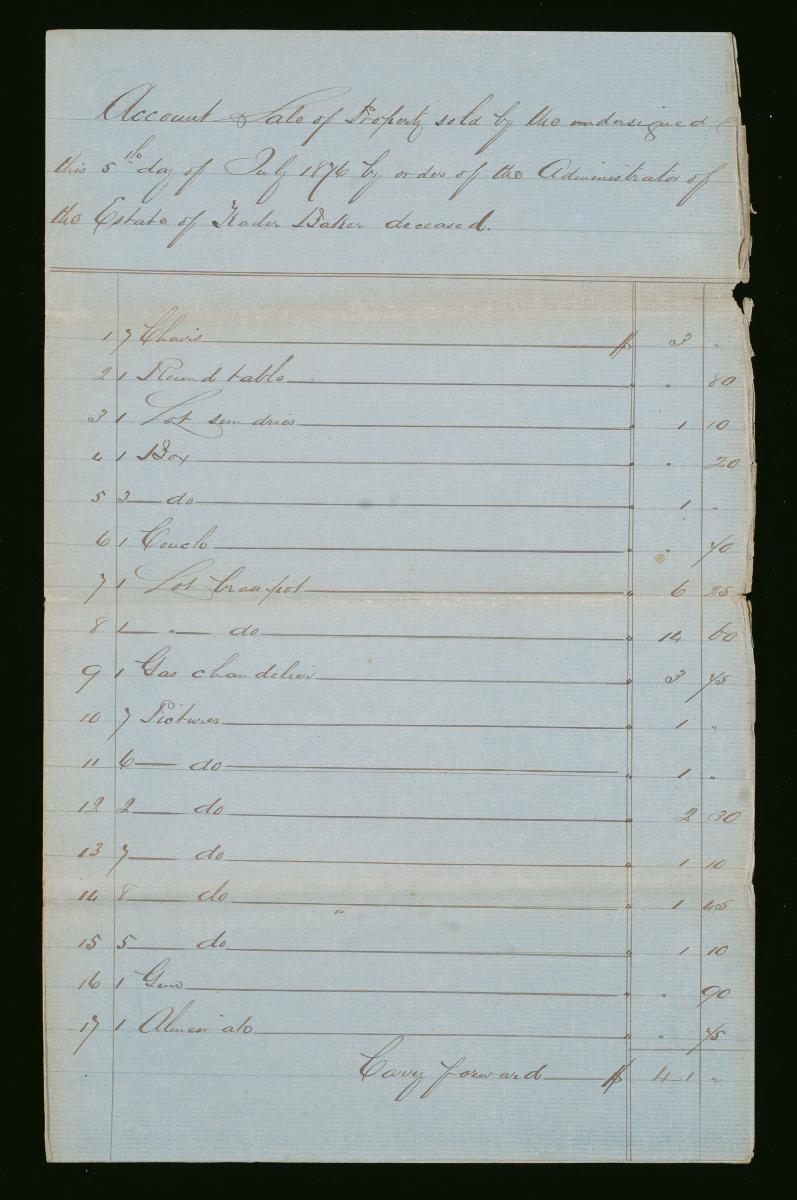 Account Sale of Property sold by the undersigned
this 5th day of July 1876 by order of the Administrator of
the Estate of Kader Baker deceased.
1 7 Chairs $ 3 "
2 1 Round table " " 80
3 1 Lot sundries " 1 10
4 1 Box " " 20
5 3 do " 1 "
6 1 Couch " " 70
7 1 Lot brass pot " 6 25
8 1 " do " 14 60
9 1 Gas chandelier " 3 75
10 7 Pictures " 1 "
11 6 do " 1 "
12 2 do " 2 30
13 7 do " 1 10
14 8 do " 1 45
15 5 do " 1 10
16 1 Gun " " 90
17 1 " " 75
Cary forward $ 41 "